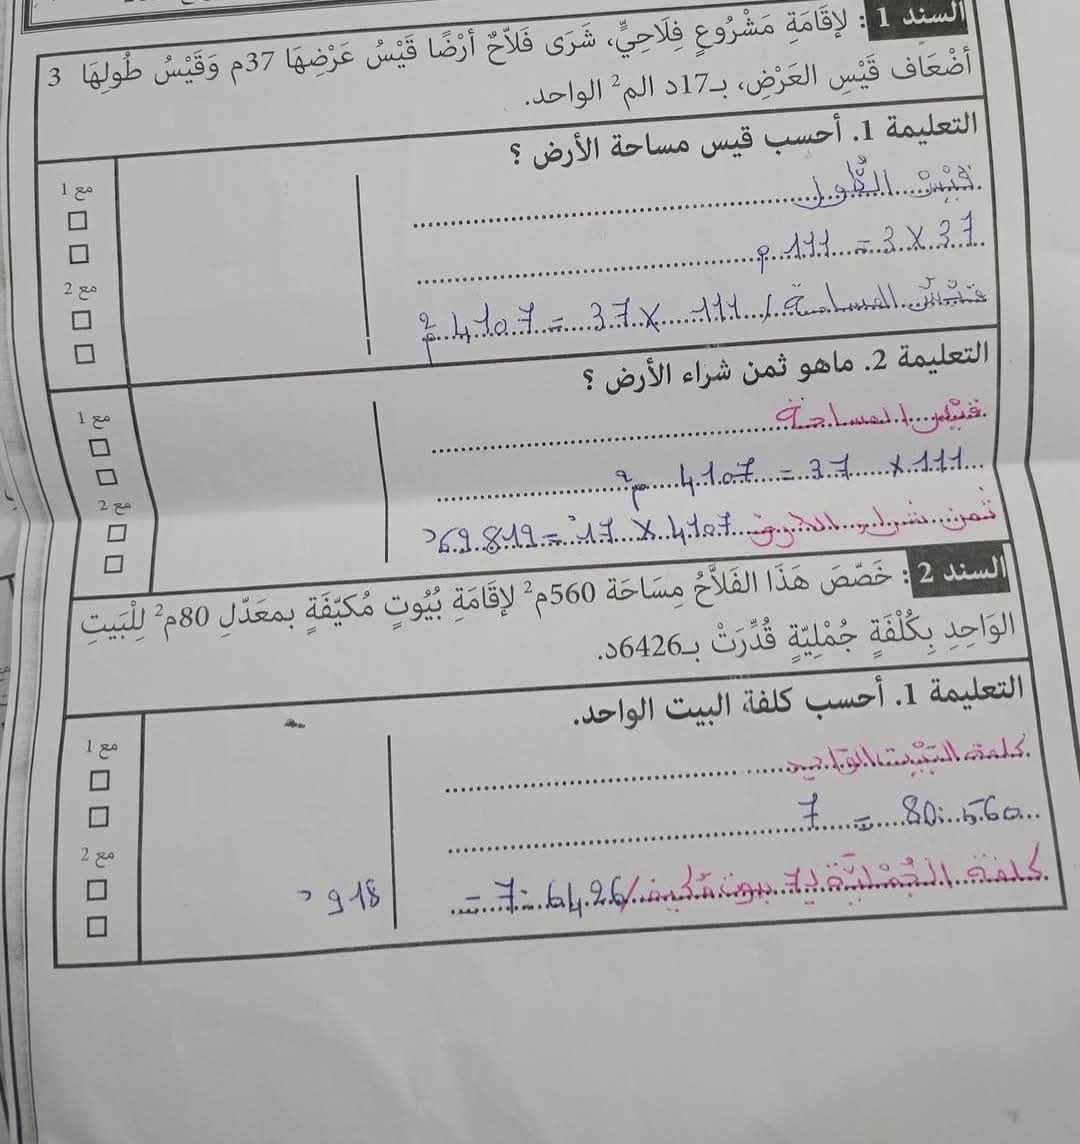 السند 1 : لإِقَامَةِ مَشْرُوعٍ فِلَاحِيٍّ، شَرَى فَلاَّحٌ أَرْضًا قَيْسُ عَرْضِهَا 37م وَقَيْسُ طُولِهَا 3
أَضْعَاف قَيْسِ العَرْضِ، بـ17د الم² الواحد.
التعليمة 1. أحسب قيس مساحة الأرض ؟
مع 1
مع 2
قيس الطول
37 × 3 = 111 م
قيس المساحة / 111 × 37 = 4107 م²
التعليمة 2. ماهو ثمن شراء الأرض ؟
مع 1
مع 2
قيس المساحة
111 × 37 = 4107 م²
ثمن شراء الأرض 4107 × 17 = 69819د
السند 2 : خَصَّصَ هَذَا الفَلاَّحُ مِسَاحَة 560م² لإِقَامَةِ بُيُوتٍ مُكَيَّفَةٍ بمعَدّلِ 80م² لِلْبَيتِ
الوَاحِدِ بِكُلْفَةٍ جُمْلِيَّةٍ قُدِّرَتْ بـ6426د.
التعليمة 1. أحسب كلفة البيت الواحد.
مع 1
مع 2
كلفة البيت الواحد
560 : 80 = 7
كلفة الجملية ل7 بيوت مكيفة / 6426 : 7 =
918 د